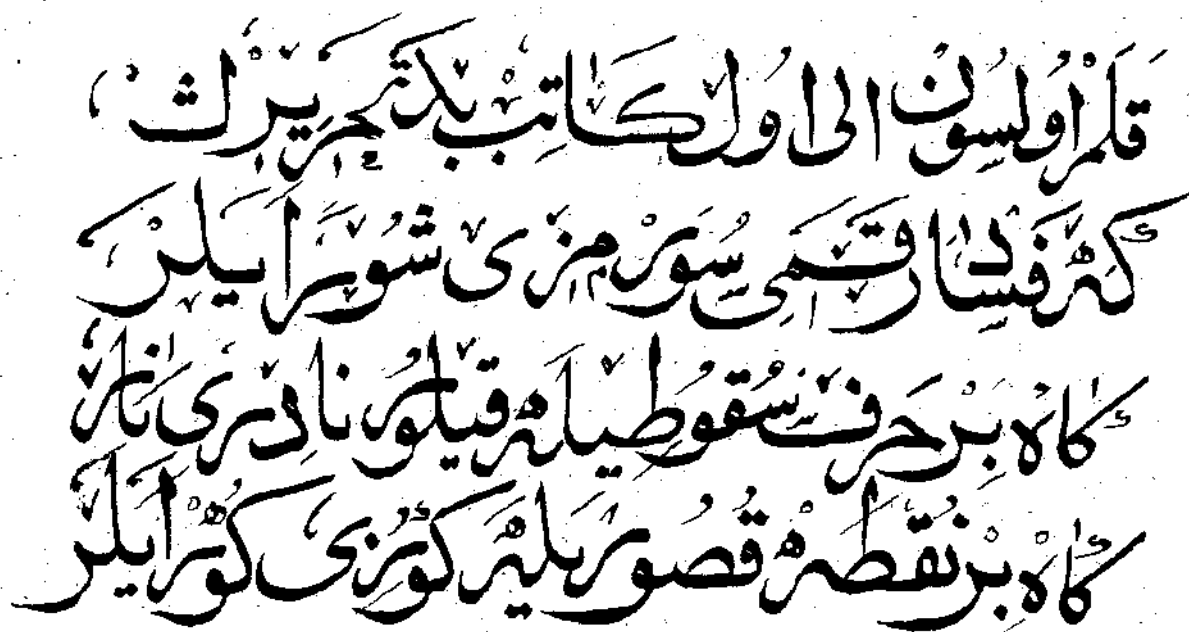 قلم اولسون الی اول كاتب بد تحریرڭ
كه فساد رقمی سورمزی شور ایلر
كاه بر حرف سقوطیله قیلور نادری نار
كاه بر نقطه قصوریله كوزی كور ایلر